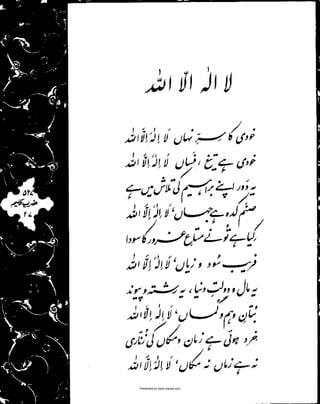 لا الٰہ الّا اللہ
خودی کا سرِّ نہاں لَا اِلٰہَ اِلَّا اللہ
خودی ہے تیغ، فَساں لَا اِلٰہَ اِلَّا اللہ
یہ دَور اپنے براہیم کی تلاش میں ہے
صنم کدہ ہے جہاں، لَا اِلٰہَ اِلَّا اللہ
کِیا ہے تُو نے متاعِ غرور کا سودا
فریبِ سُود و زیاں، لَا اِلٰہَ اِلَّا اللہ
یہ مال و دولتِ دنیا، یہ رشتہ و پیوند
بُتانِ وہم و گُماں، لَا اِلٰہَ اِلَّا اللہ
خرد ہوئی ہے زمان و مکاں کی زُنّاری
نہ ہے زماں نہ مکاں، لَا اِلٰہَ اِلَّا اللہ
۵۲۷
ضربِ کلیم
۲۷
Presented by www.ziaraat.com